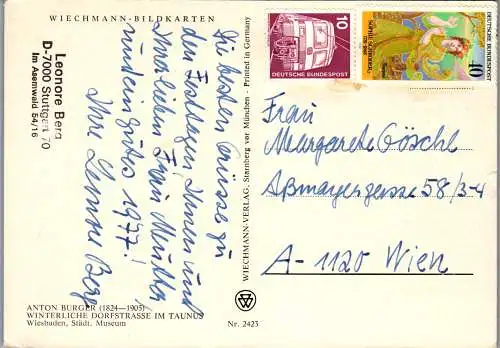 WIECHMANN-BILDKARTEN
Leonore Berg
D-7000 Stuttgart 70
Im Asemwald 54/16
Die besten Grüsse zu
den Festtagen, Ihnen und
Ihrer lieben Frau Mutter,
und ein gutes 1977!
Ihre Leonore Berg
ANTON BURGER (1824—1905)
WINTERLICHE DORFSTRASSE IM TAUNUS
Wiesbaden, Städt. Museum
Nr. 2423
WIECHMANN-VERLAG, Starnberg vor München - Printed in Germany
10
DEUTSCHE BUNDESPOST
SOPHIE SCHRÖDER
DEUTSCHE BUNDESPOST
40
Frau
Margarete Göschl
Aßmayergasse 58/3-4
A-1120 Wien